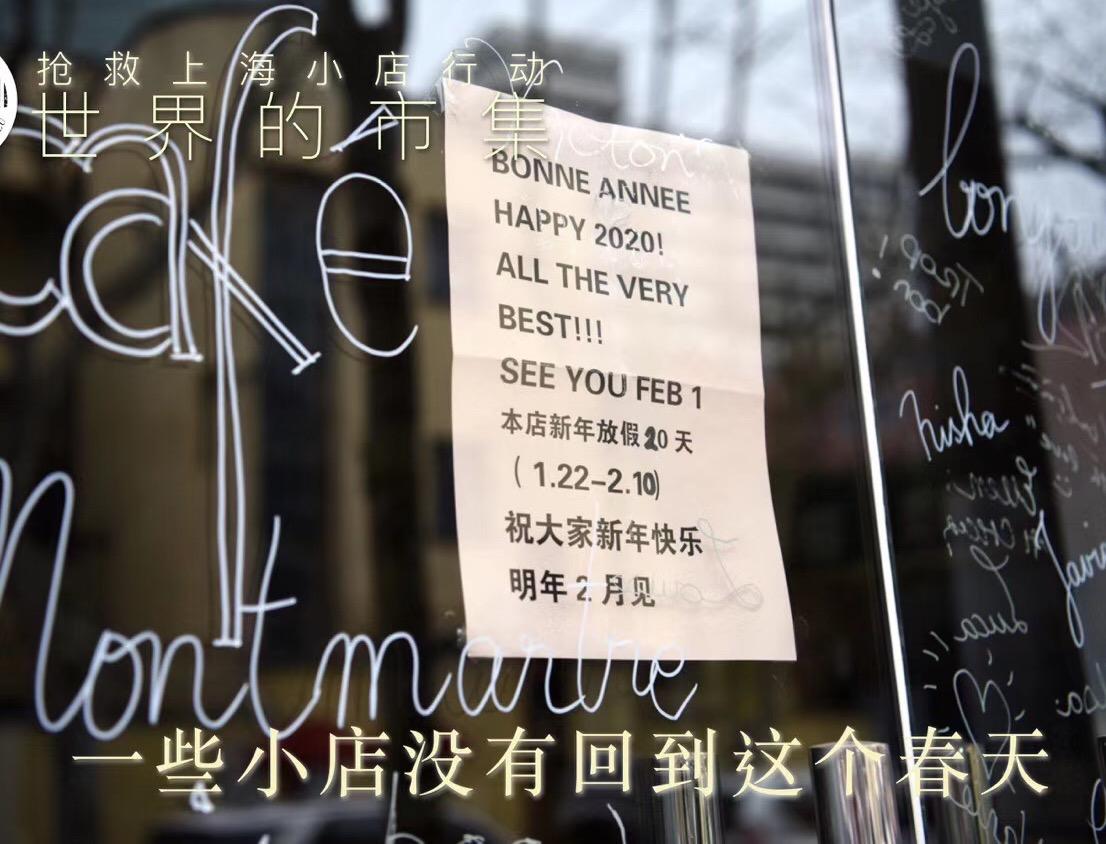 抢救上海小店行动
世界的市集
Café
Montmartre
BONNE ANNEE
HAPPY 2020!
ALL THE VERY
BEST!!!
SEE YOU FEB 1
本店新年放假20天
(1.22-2.10)
祝大家新年快乐
明年2月见
nisha
Luca
一些小店没有回到这个春天